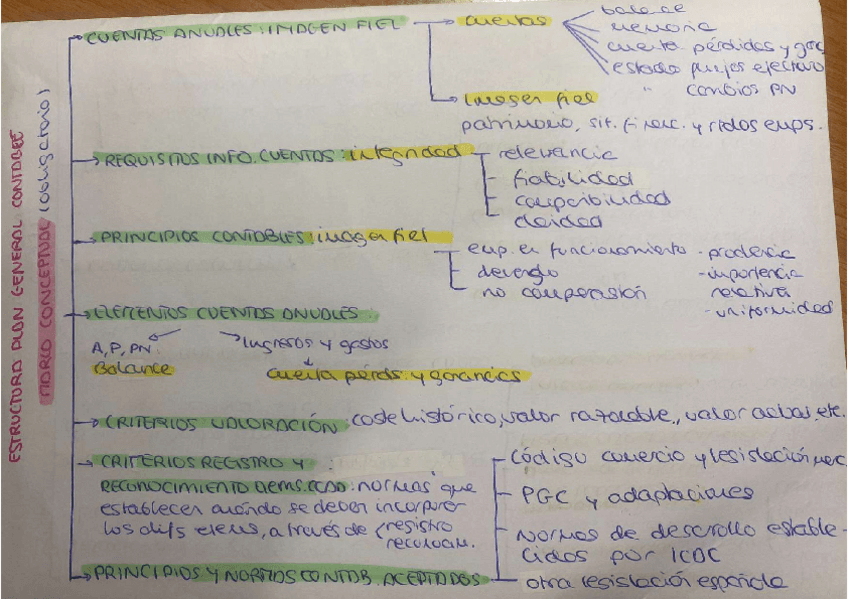 ESTRUCTURA PLAN GENERAL CONTABLE
MARCO CONCEPTUAL (obligatorio)
CUENTAS ANUALES: IMAGEN FIEL
cuentas
balance
memoria
cuenta pérdidas y
estado flujos efectivo
" cambios PN
imagen fiel
patrimonio, sit. financ. y rtdos emps.
REQUISITOS INFO. CUENTAS: integridad
relevancia
fiabilidad
comparabilidad
claridad
PRINCIPIOS CONTABLES: imagen fiel
emp. en funcionamiento
devengo
no compensión
- prudencia
- importancia
relativa
- uniformidad
ELEMENTOS CUENTAS ANUALES:
A, P, PN
Balance
Ingresos y gastos
cuenta pérds. y ganancias
CRITERIOS VALORACIÓN: coste histórico, valor razonable, valor actual, etc.
CRITERIOS REGISTRO Y :
RECONOCIMIENTO ELEMS. CCAA: normas que
establecen cuándo se deben incorporar
los difs elems, a través de registro
reconoam.
PRINCIPIOS Y NORMAS CONTAB. ACEPTADOS
Código comercio y legislación merc.
PGC y adaptaciones
Normas de desarrollo estable-
cidas por ICAC
otra legislación española